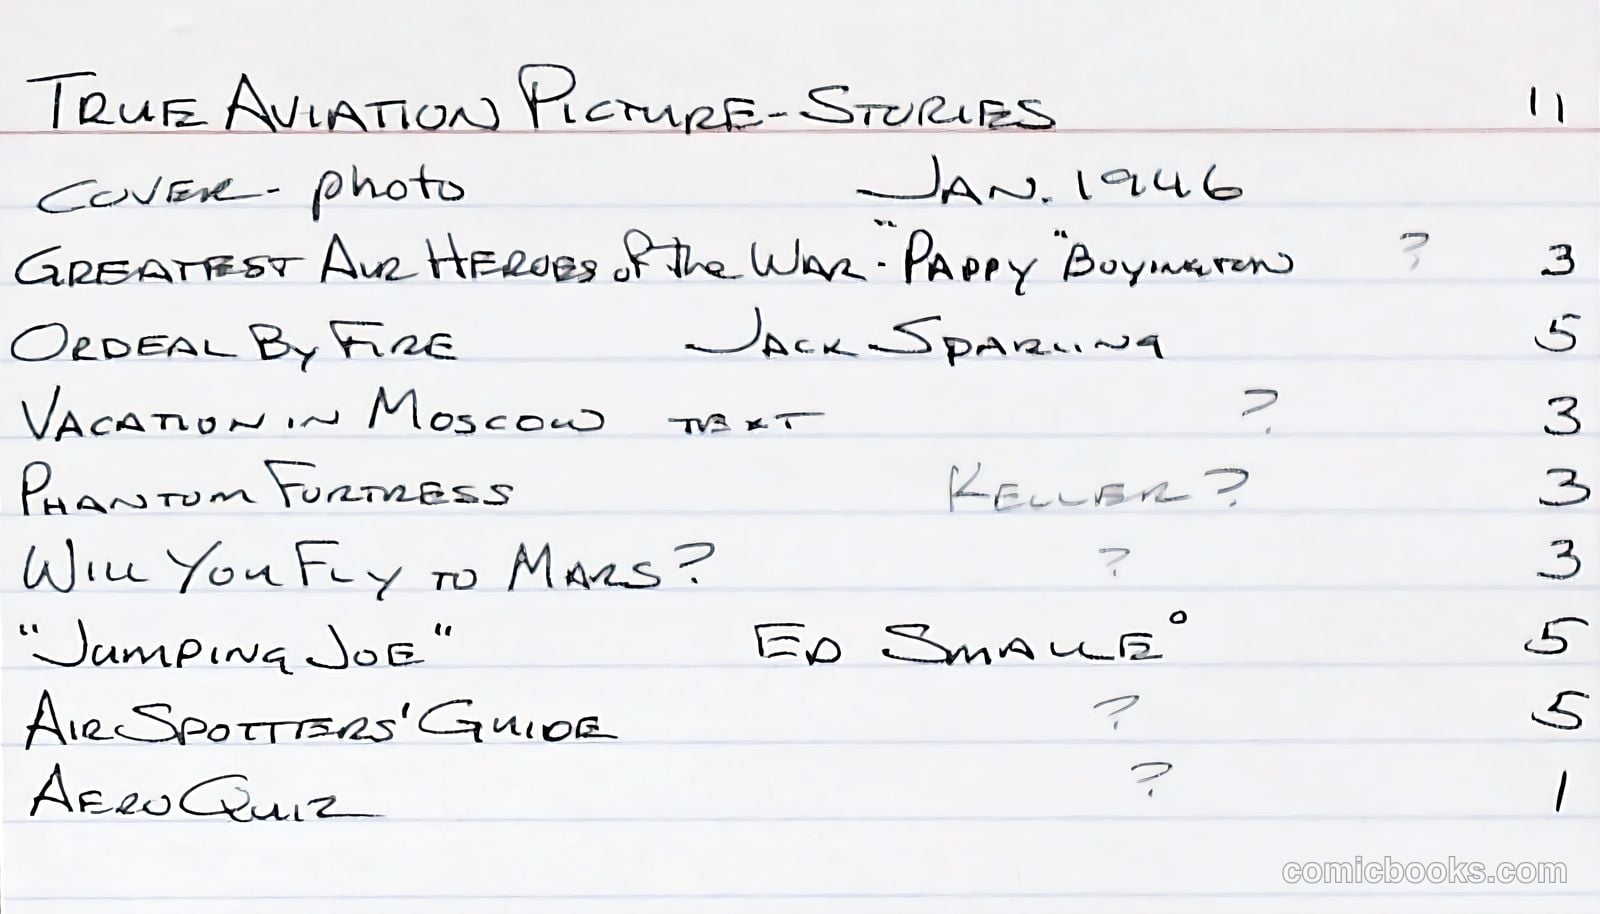 TRUE AVIATION PICTURE-STORIES 11
COVER - photo JAN. 1946
GREATEST AIR HEROES of the WAR - "PAPPY" BOYINGTON ? 3
ORDEAL By FIRE JACK SPARLING 5
VACATION IN MOSCOW TEXT ? 3
PHANTOM FORTRESS KELLER? 3
WILL YOU FLY TO MARS? ? 3
"JUMPING JOE" ED SMALLE° 5
AIR SPOTTERS' GUIDE ? 5
AERO QUIZ ? 1
comicbooks.com